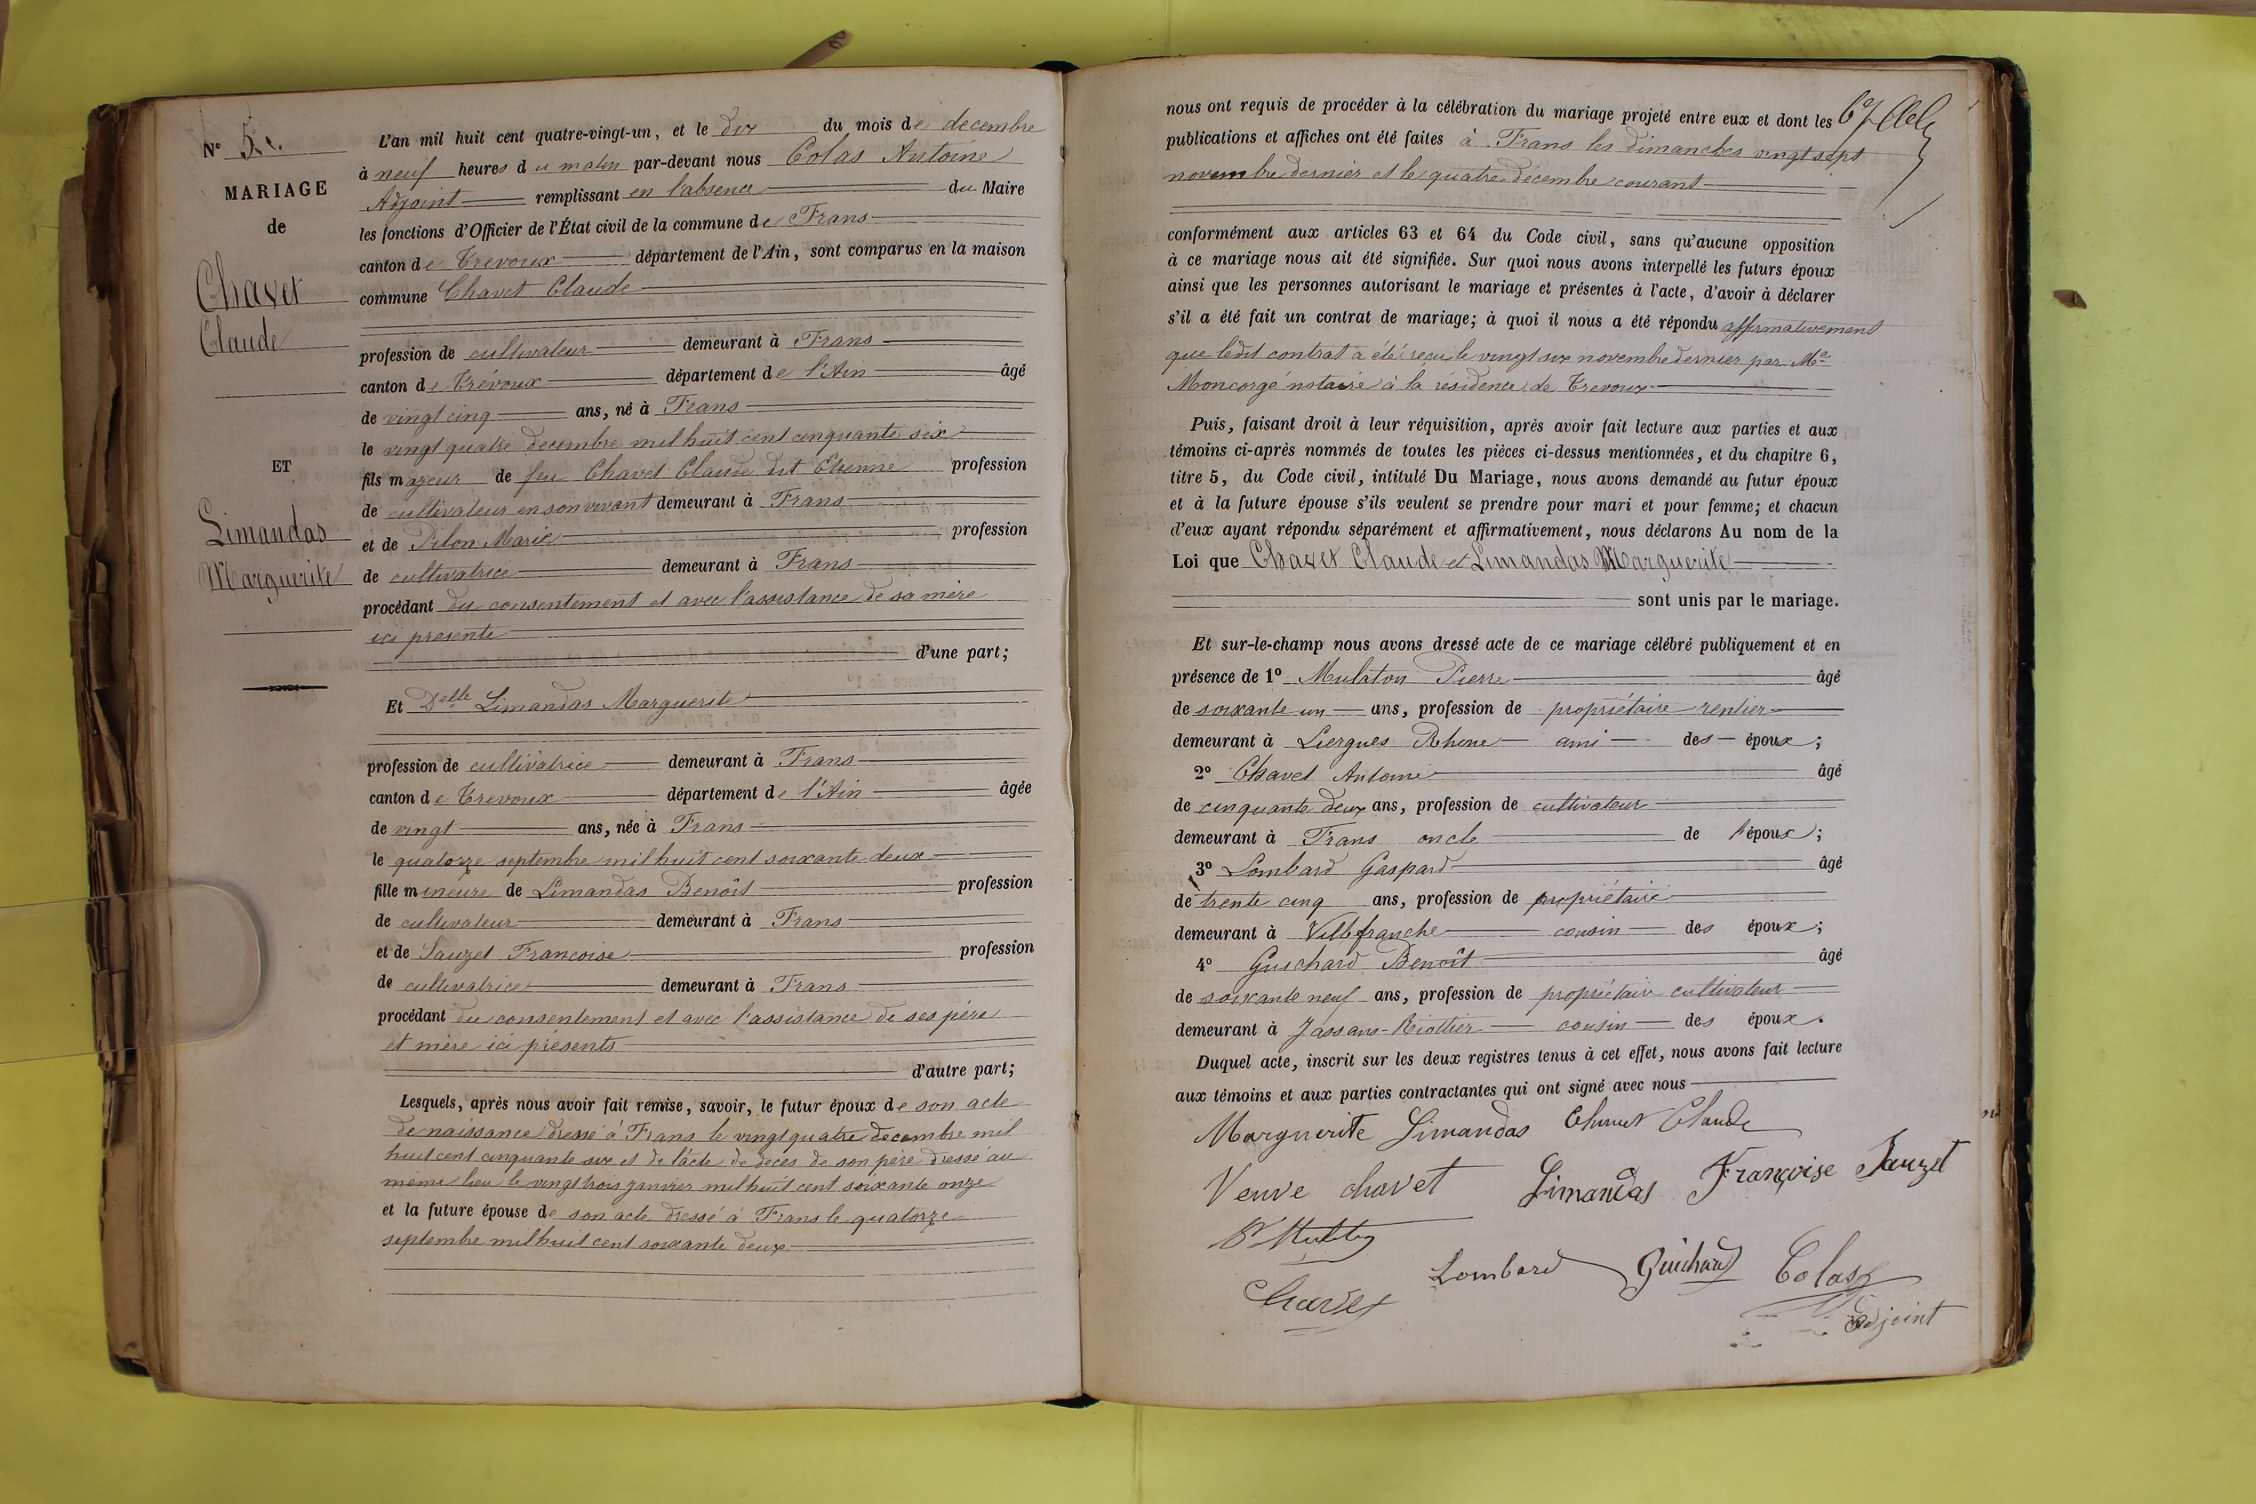 N° 5.
MARIAGE
de
Chavet
Claude
ET
Limandas
Marguerite
L'an mil huit cent quatre-vingt-un, et le dix du mois de decembre
à neuf heures du matin par-devant nous Colas Antoine
Adjoint remplissant en l'absence du Maire
les fonctions d'Officier de l'État civil de la commune de Frans
canton de Trevoux département de l'Ain, sont comparus en la maison
commune Chavet Claude
profession de cultivateur demeurant à Frans
canton de Trévoux département de l'Ain âgé
de vingt cinq ans, né à Frans
le vingt quatre decembre mil huit cent cinquante six
fils majeur de feu Chavet Claude dit Etienne profession
de cultivateur en son vivant demeurant à Frans
et de Pilon Marie profession
de cultivatrice demeurant à Frans
procédant du consentement et avec l'assistance de sa mère
ici presente
d'une part;
Et Delle Limandas Marguerite
profession de cultivatrice demeurant à Frans
canton de Trevoux département de l'Ain âgée
de vingt ans, née à Frans
le quatorze septembre mil huit cent soixante deux
fille mineure de Limandas Benoît profession
de cultivateur demeurant à Frans
et de Sauzet Francoise profession
de cultivatrice demeurant à Frans
procédant du consentement et avec l'assistance de ses père
et mère ici présents
d'autre part;
Lesquels, après nous avoir fait remise, savoir, le futur époux de son acte
de naissance dressé à Frans le vingt quatre decembre mil
huit cent cinquante six et de l'acte de deces de son père dressé au
même lieu le vingt trois janvier mil huit cent soixante onze
et la future épouse de son acte dressé à Frans le quatorze
septembre mil huit cent soixante deux
nous ont requis de procéder à la célébration du mariage projeté entre eux et dont les
publications et affiches ont été faites à Frans les dimanches vingt sept
novembre dernier et le quatre decembre courant
conformément aux articles 63 et 64 du Code civil, sans qu'aucune opposition
à ce mariage nous ait été signifiée. Sur quoi nous avons interpellé les futurs époux
ainsi que les personnes autorisant le mariage et présentes à l'acte, d'avoir à déclarer
s'il a été fait un contrat de mariage; à quoi il nous a été répondu affirmativement
que ledit contrat a été recu le vingt six novembre dernier par Me
Moncorgé notaire à la résidence de Trevoux
Puis, faisant droit à leur réquisition, après avoir fait lecture aux parties et aux
témoins ci-après nommés de toutes les pièces ci-dessus mentionnées, et du chapitre 6,
titre 5, du Code civil, intitulé Du Mariage, nous avons demandé au futur époux
et à la future épouse s'ils veulent se prendre pour mari et pour femme; et chacun
d'eux ayant répondu séparément et affirmativement, nous déclarons Au nom de la
Loi que Chavet Claude et Limandas Marguerite
sont unis par le mariage.
Et sur-le-champ nous avons dressé acte de ce mariage célébré publiquement et en
présence de 1° Mulaton Pierre âgé
de soixante un ans, profession de propriétaire rentier
demeurant à Liergues Rhône ami des époux;
2° Chavet Antoine âgé
de cinquante deux ans, profession de cultivateur
demeurant à Frans oncle de l'époux;
3° Lombard Gaspard âgé
de trente cinq ans, profession de propriétaire
demeurant à Villefranche cousin des époux;
4° Guichard Benoît âgé
de soixante neuf ans, profession de propriétaire cultivateur
demeurant à Jassans-Riottier cousin des époux.
Duquel acte, inscrit sur les deux registres tenus à cet effet, nous avons fait lecture
aux témoins et aux parties contractantes qui ont signé avec nous
Marguerite Limandas Chavet Claude
Veuve chavet Limandas Françoise Sauzet
Lombard Guichard Colas
Chavet
adjoint